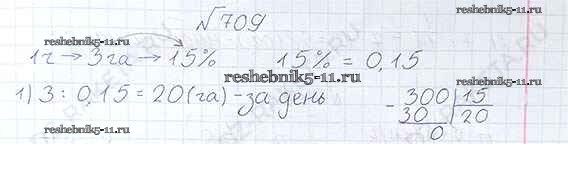 №709
reshebnik5-11.ru
1ч → 3га → 15% 15% = 0,15
reshebnik5-11.ru
reshebnik5-11.ru
1) 3 : 0,15 = 20(га) - за день
- 300 | 15
30 20
0
reshebnik5-11.ru
reshebnik5-11.ru